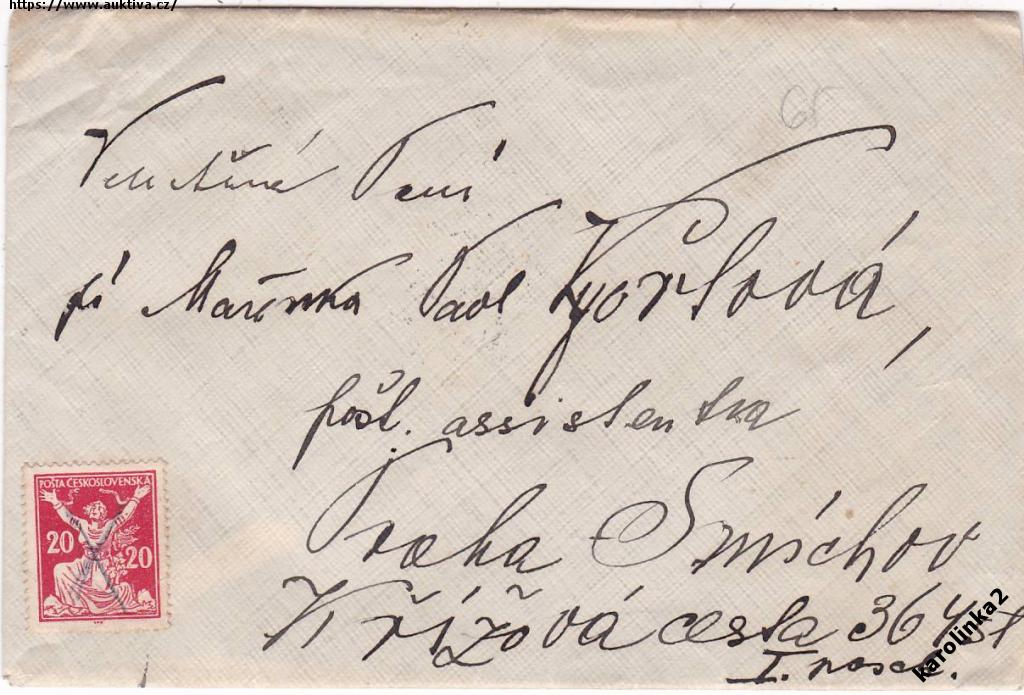 https://www.auktiva.cz/
65
Velectěná Paní
pí Mařenka Pavl Vyorlová,
pošt. assistentka
Praha Smíchov
Křížová cesta 364
I.
POŠTA ČESKOSLOVENSKÁ
20 20
karolinka2